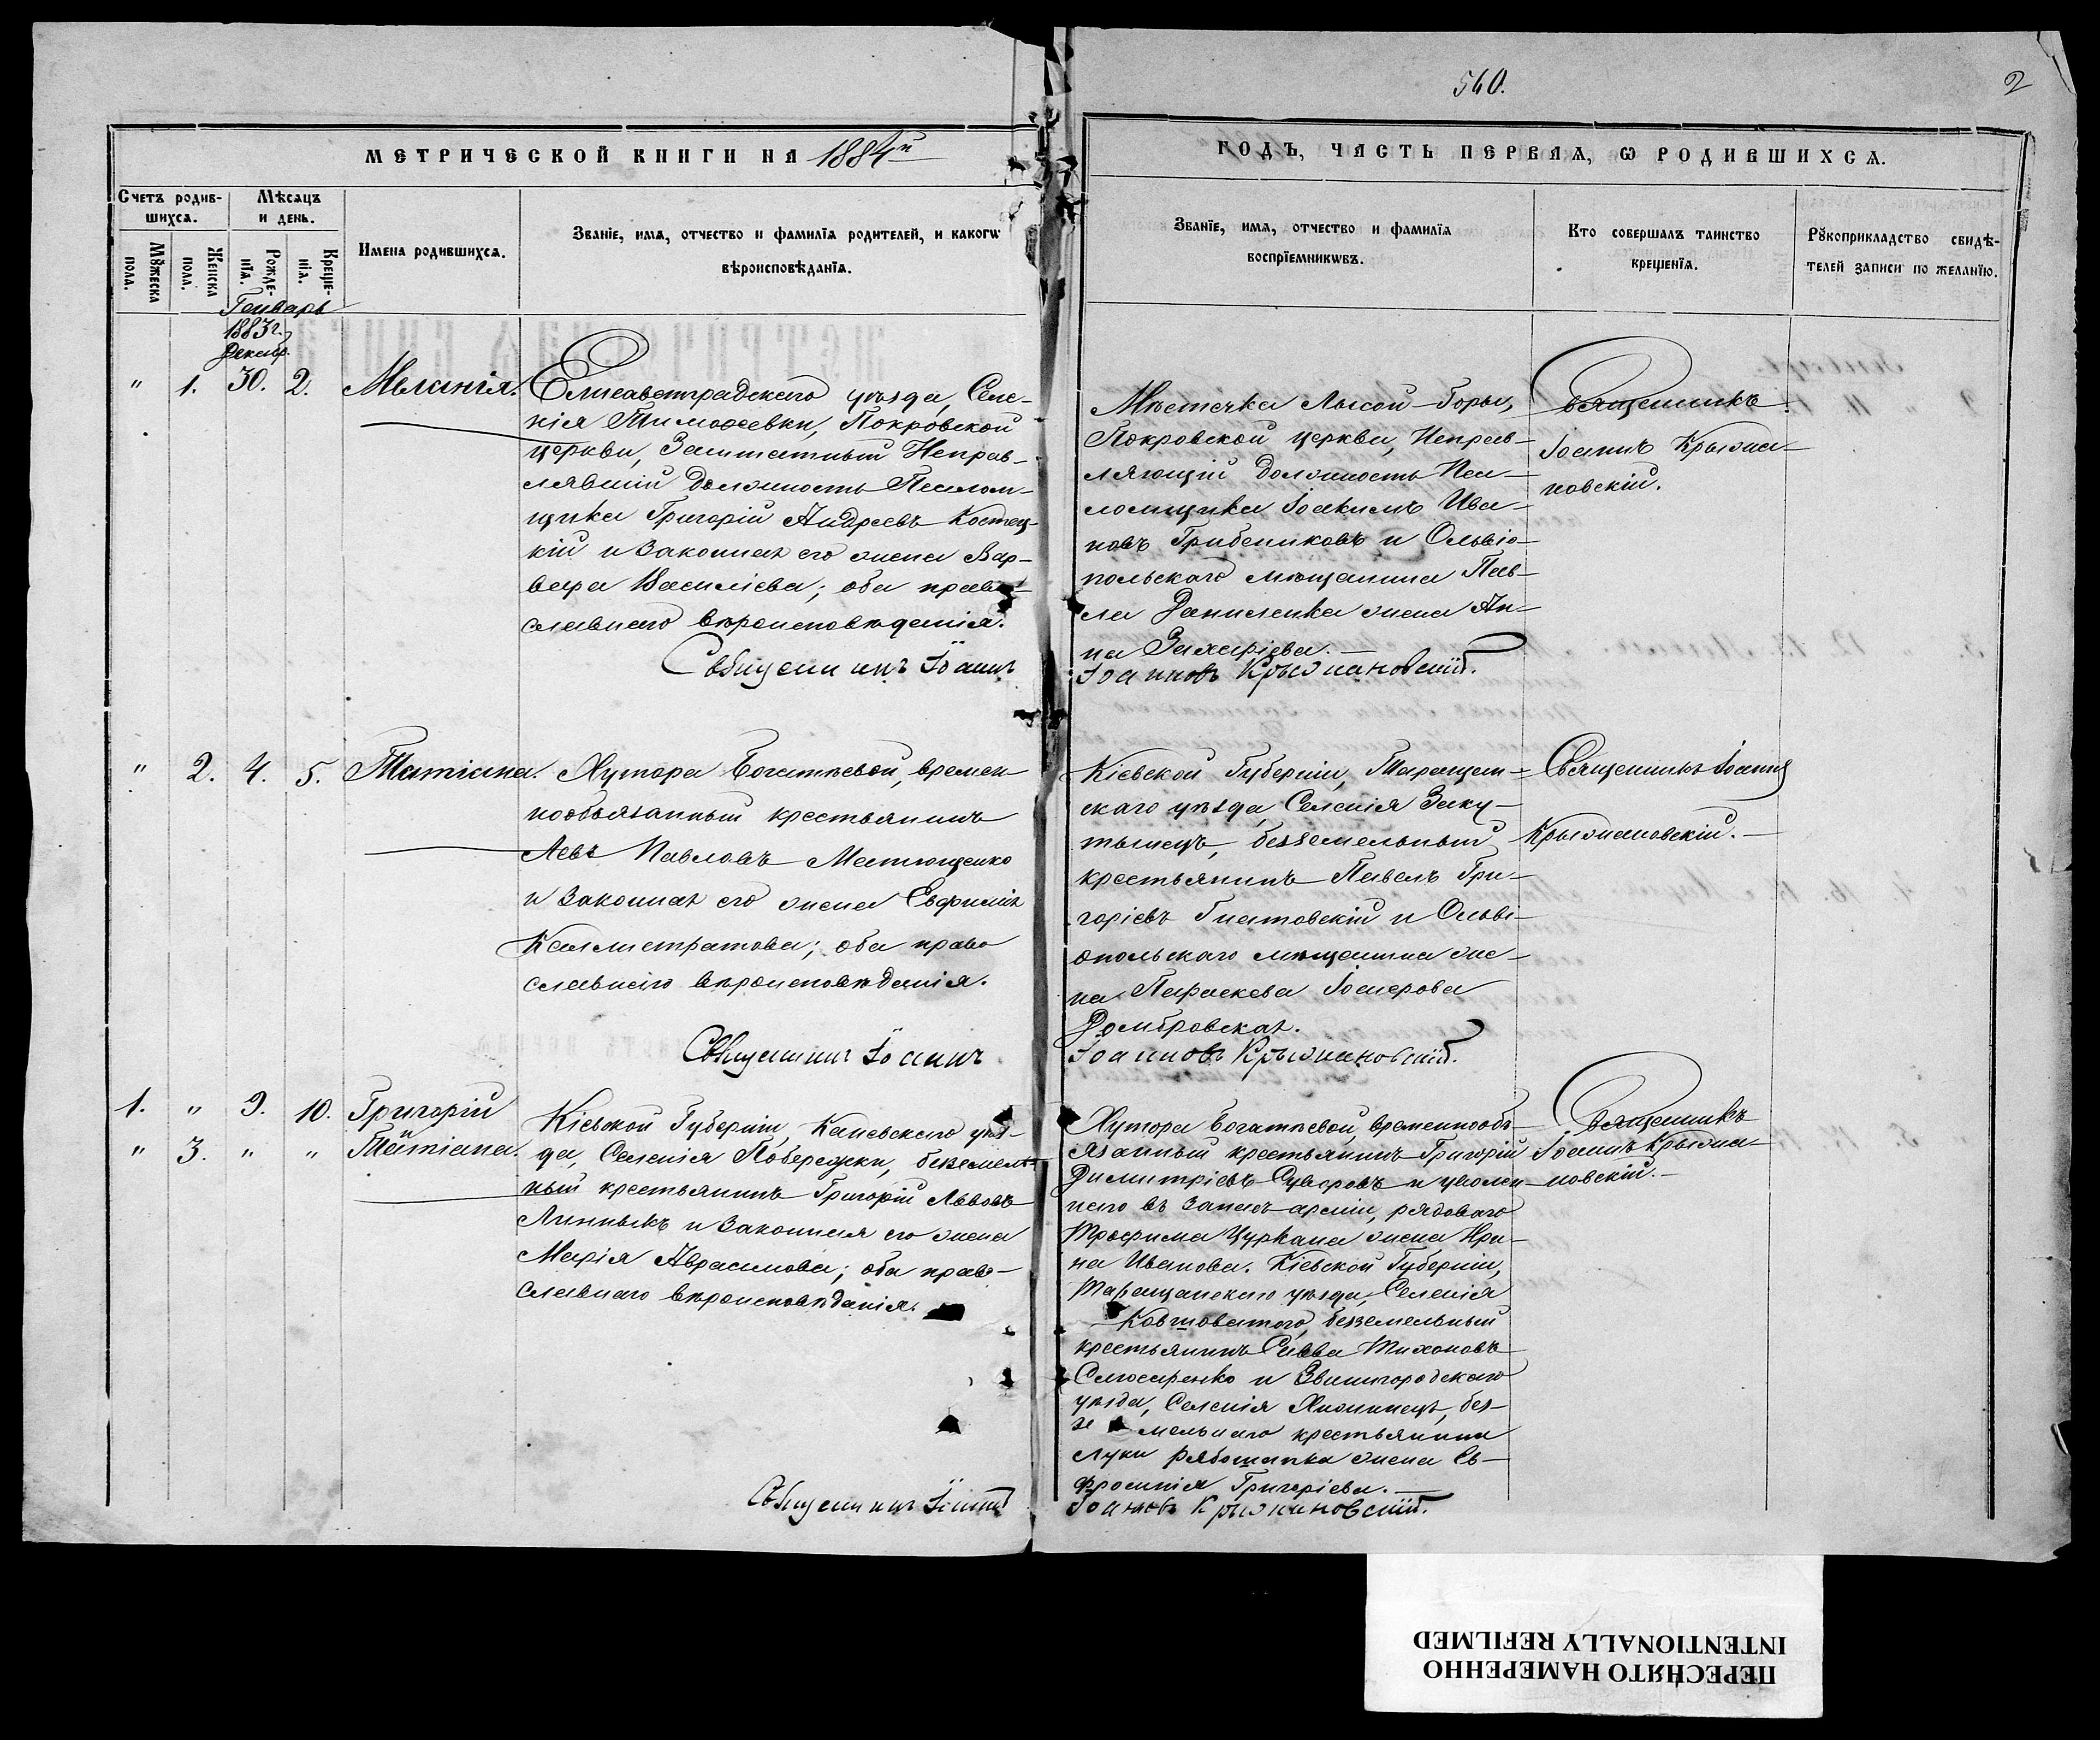 540.
2
МЕТРИЧЕСКОЙ КНИГИ НА 1884й
ГОДЪ, ЧАСТЬ ПЕРВАЯ, Ѡ РОДИВШИХСЯ.
Счетъ родив-
шихся.
Мѣсяцъ
и день.
Мꙋжеска
пола.
Женска
пола.
Рожде-
нїя.
Креще-
нїя.
Имена родившихся.
Званїе, имя, отчество и фамилїя родителей, и какогѡ
вѣроисповѣданїя.
Званїе, имя, отчество и фамилїя
воспрїемникѡвъ.
Кто совершалъ таинство
крещенїя.
Рꙋкоприкладство свидѣ-
телей записи по желанїю.
Генварь
1883г.
Декабр.
" 1. 30. 2. Меланія.
Елисаветградскаго уѣзда, Селе-
нія Тимоѳеевки, Покровской
церкви, Заштатный Исправ-
лявшій должность Псалом-
щика Григорій Андреевъ Костец-
кій и законная его жена Вар-
вара Василіева; оба право-
славнаго вѣроисповѣданія.
Священникъ Іоаннъ
Мѣстечка Лысой-Горы,
Покровской церкви, Исправ-
ляющій должность Пса-
ломщика Іоакимъ Ива-
новъ Грибениковъ и Ольвіо-
польскаго мѣщанина Пав-
ла Даниленка жена Ан-
на Захаріева.
Іоанновъ Крыжановскій.
Священникъ
Іоаннъ Крыжа-
новскій.
" 2. 4. 5. Татіана.
Хутора Богатѣевой, времен-
нообязанный крестьянинъ
Левъ Павловъ Матющенко
и законная его жена Евфимія
Каллистратова; оба право
славнаго вѣроисповѣданія.
Священникъ Іоаннъ
Кіевской Губерніи, Таращан-
скаго уѣзда, Селенія Заку-
тынецъ, безземельный
крестьянинъ Павелъ Гри-
горіевъ Гнатовскій и Ольві-
опольскаго мѣщанина же-
на Параскева Іосифова
Домбровская.
Іоанновъ Крыжановскій.
Священникъ Іоаннъ
Крыжановскій.
1. " 9. 10. Григорій
" 3. " " Татіана.
Кіевской Губерніи, Каневскаго уѣз-
да, Селенія Побережки, безземель-
ный крестьянинъ Григорій Львовъ
Линникъ и законная его жена
Марія Аврамова; оба право-
славнаго вѣроисповѣданія.
Священникъ Іоаннъ
Хутора Богатѣевой, временнообя-
язанный крестьянинъ Григорій
Димитріевъ Суворовъ и уволен-
наго въ запасъ арміи, рядоваго
Трофима Цуркана жена Ири-
на Иванова. Кіевской Губерніи,
Таращанскаго уѣзда, Селенія
Ковшоватого, безземельный
крестьянинъ Савва Тихоновъ
Слюсаренко и Звенигородскаго
уѣзда, Селенія Яноминецъ, без-
зе мельнаго крестьянина
Луки Рябошапка жена Ев-
фросинія Григоріева.
Іоанновъ Крыжановскій.
Священникъ
Іоаннъ Крыжа-
новскій.
ПЕРЕСНЯТО НАМЕРЕННО
INTENTIONALLY REFILMED